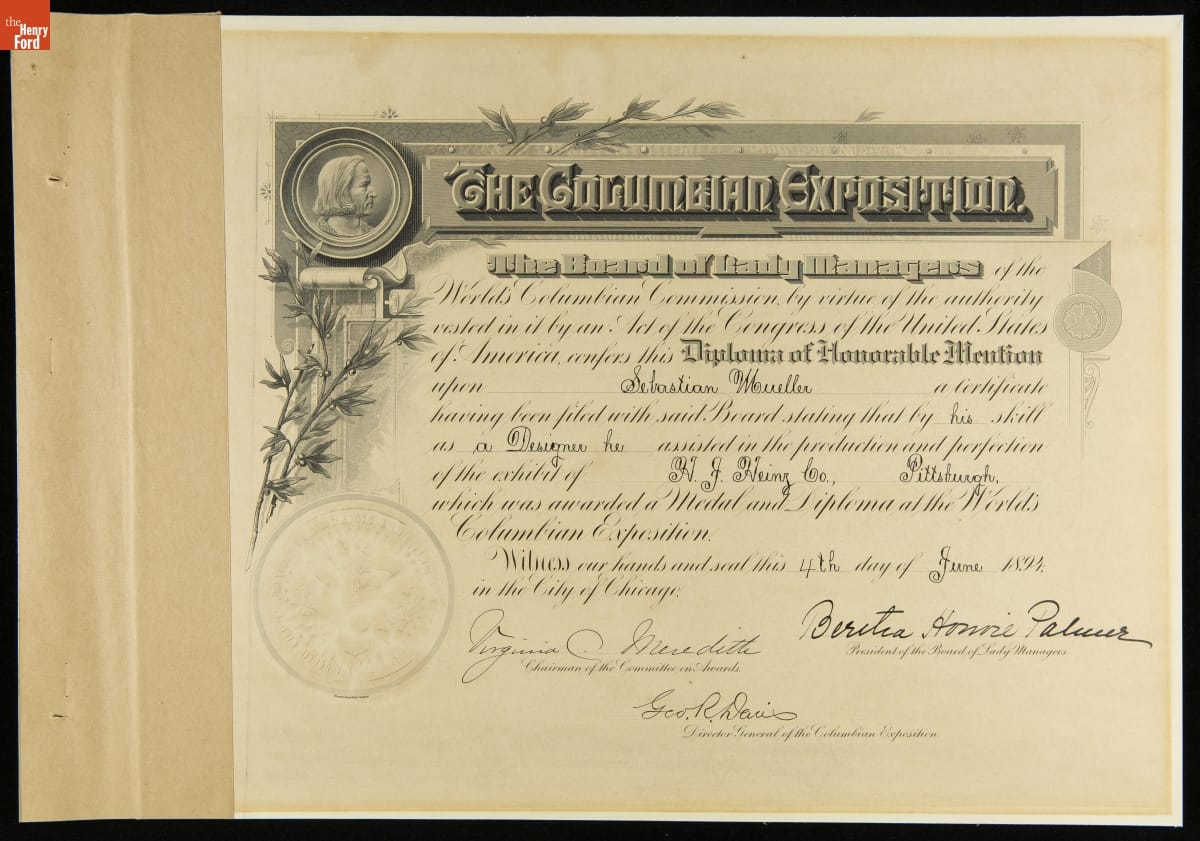 the
Henry
Ford
THE COLUMBIAN EXPOSITION.
The Board of Lady Managers of the
World's Columbian Commission, by virtue of the authority
vested in it by an Act of the Congress of the United States
of America, confers this Diploma of Honorable Mention
upon Sebastian Mueller a certificate
having been filed with said Board stating that by his skill
as a Designer he assisted in the production and perfection
of the exhibit of H. J. Heinz Co., Pittsburgh,
which was awarded a Medal and Diploma at the World's
Columbian Exposition.
Witness our hands and seal this 4th day of June 1894.
in the City of Chicago.
Virginia C. Meredith
Chairman of the Committee on Awards.
Bertha Honoré Palmer
President of the Board of Lady Managers.
Geo. R. Davis
Director General of the Columbian Exposition.